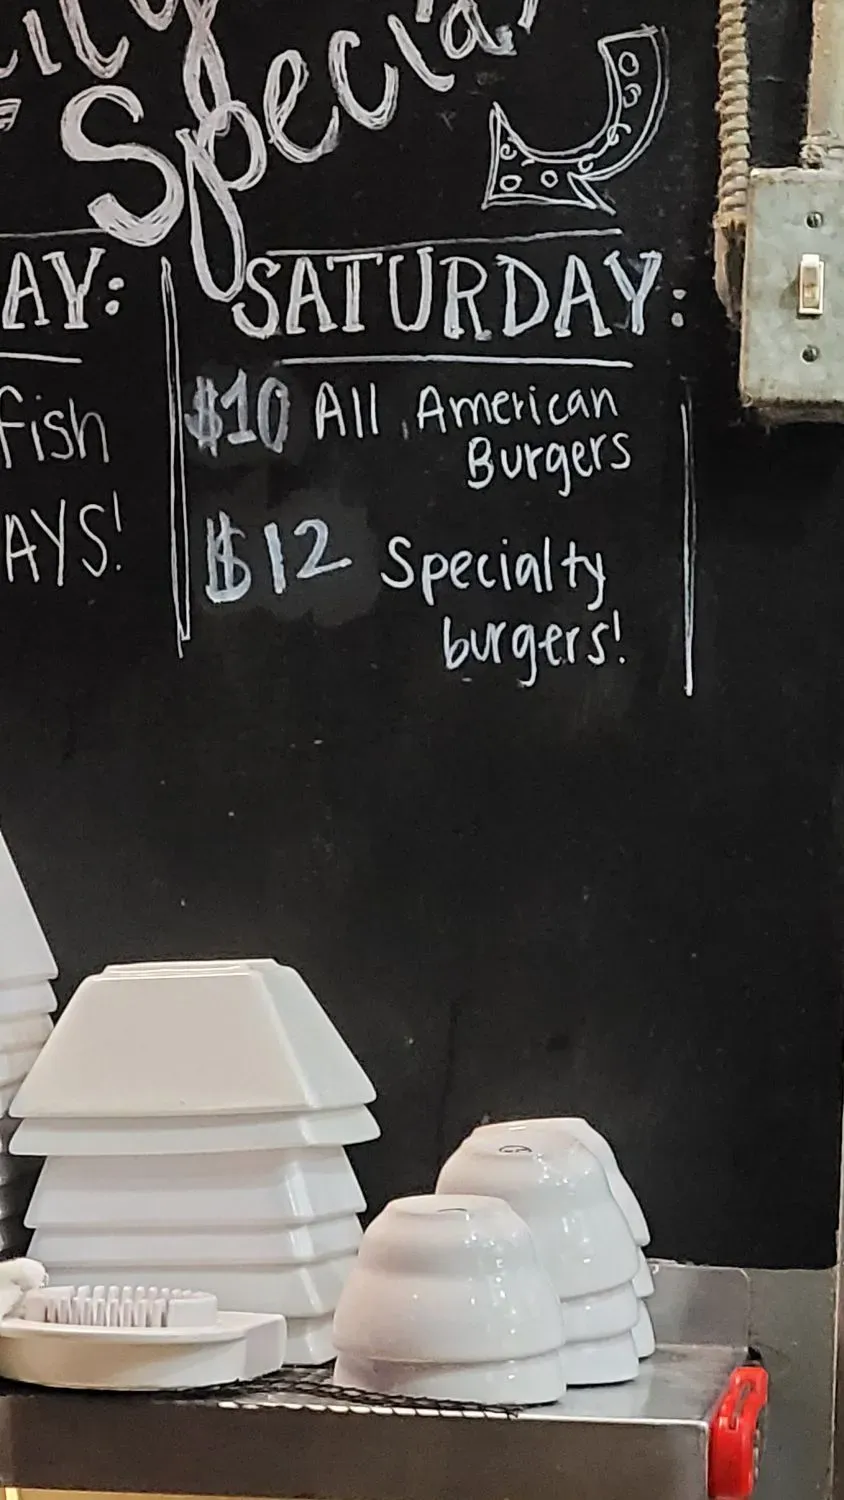 Special
AY:
fish
AYS!
SATURDAY:
$10 All American
Burgers
$12 Specialty
burgers!